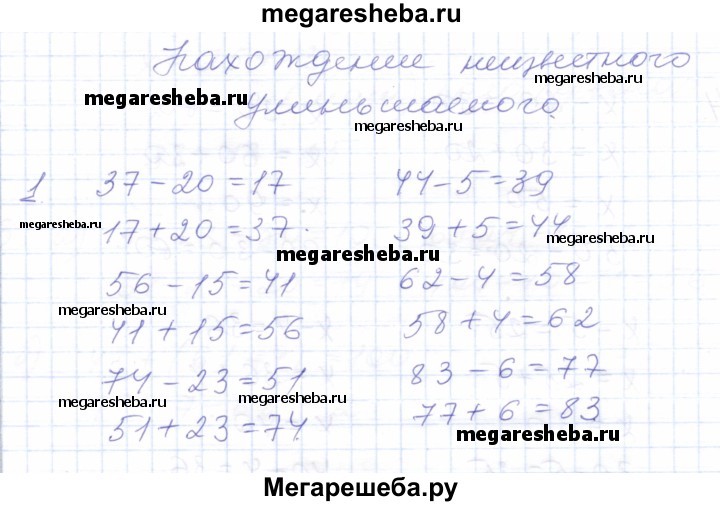 megaresheba.ru
Нахождение неизвестного
megaresheba.ru
megaresheba.ru
уменьшаемого.
megaresheba.ru
1. 37 - 20 = 17 44 - 5 = 39
megaresheba.ru
17 + 20 = 37. 39 + 5 = 44
megaresheba.ru
megaresheba.ru
56 - 15 = 41 62 - 4 = 58
megaresheba.ru
41 + 15 = 56 58 + 4 = 62
megaresheba.ru
74 - 23 = 51 83 - 6 = 77
megaresheba.ru
megaresheba.ru
51 + 23 = 74 77 + 6 = 83
megaresheba.ru
Мегарешеба.ру